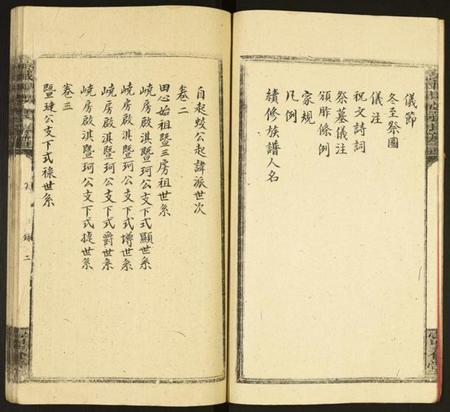 儀節
冬至祭圖
儀注
祝文詩詞
祭墓儀注
頒胙條例
家規
凡例
續修族譜人名
自起蛟公起諱派世次
卷二
田心始祖暨三房祖世系
嶢房啟淇暨珂公支下式顯世系
嶢房啟淇暨珂公支下式增世系
嶢房啟淇暨珂公支下式爵世系
嶢房啟淇暨珂公支下式提世系
卷三
暨璉公支下式祿世系